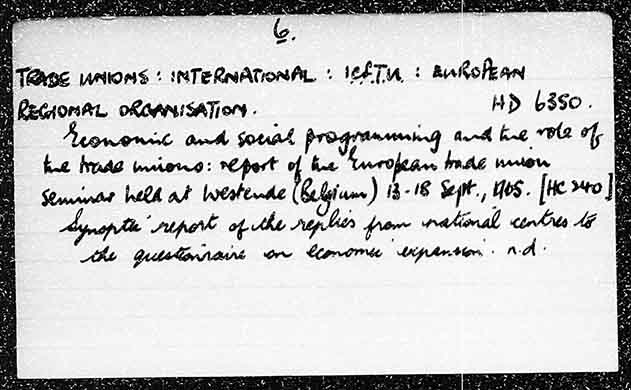 6.
TRADE UNIONS : INTERNATIONAL : I.C.F.T.U. : EUROPEAN
REGIONAL ORGANISATION. HD 6350.
Economic and social programming and the role of
the trade unions: report of the European trade union
seminar held at Westende (Belgium) 13-18 Sept., 1965. [HC 240]
Synoptic report of the replies from national centres to
the questionnaire on economic expansion. n.d.